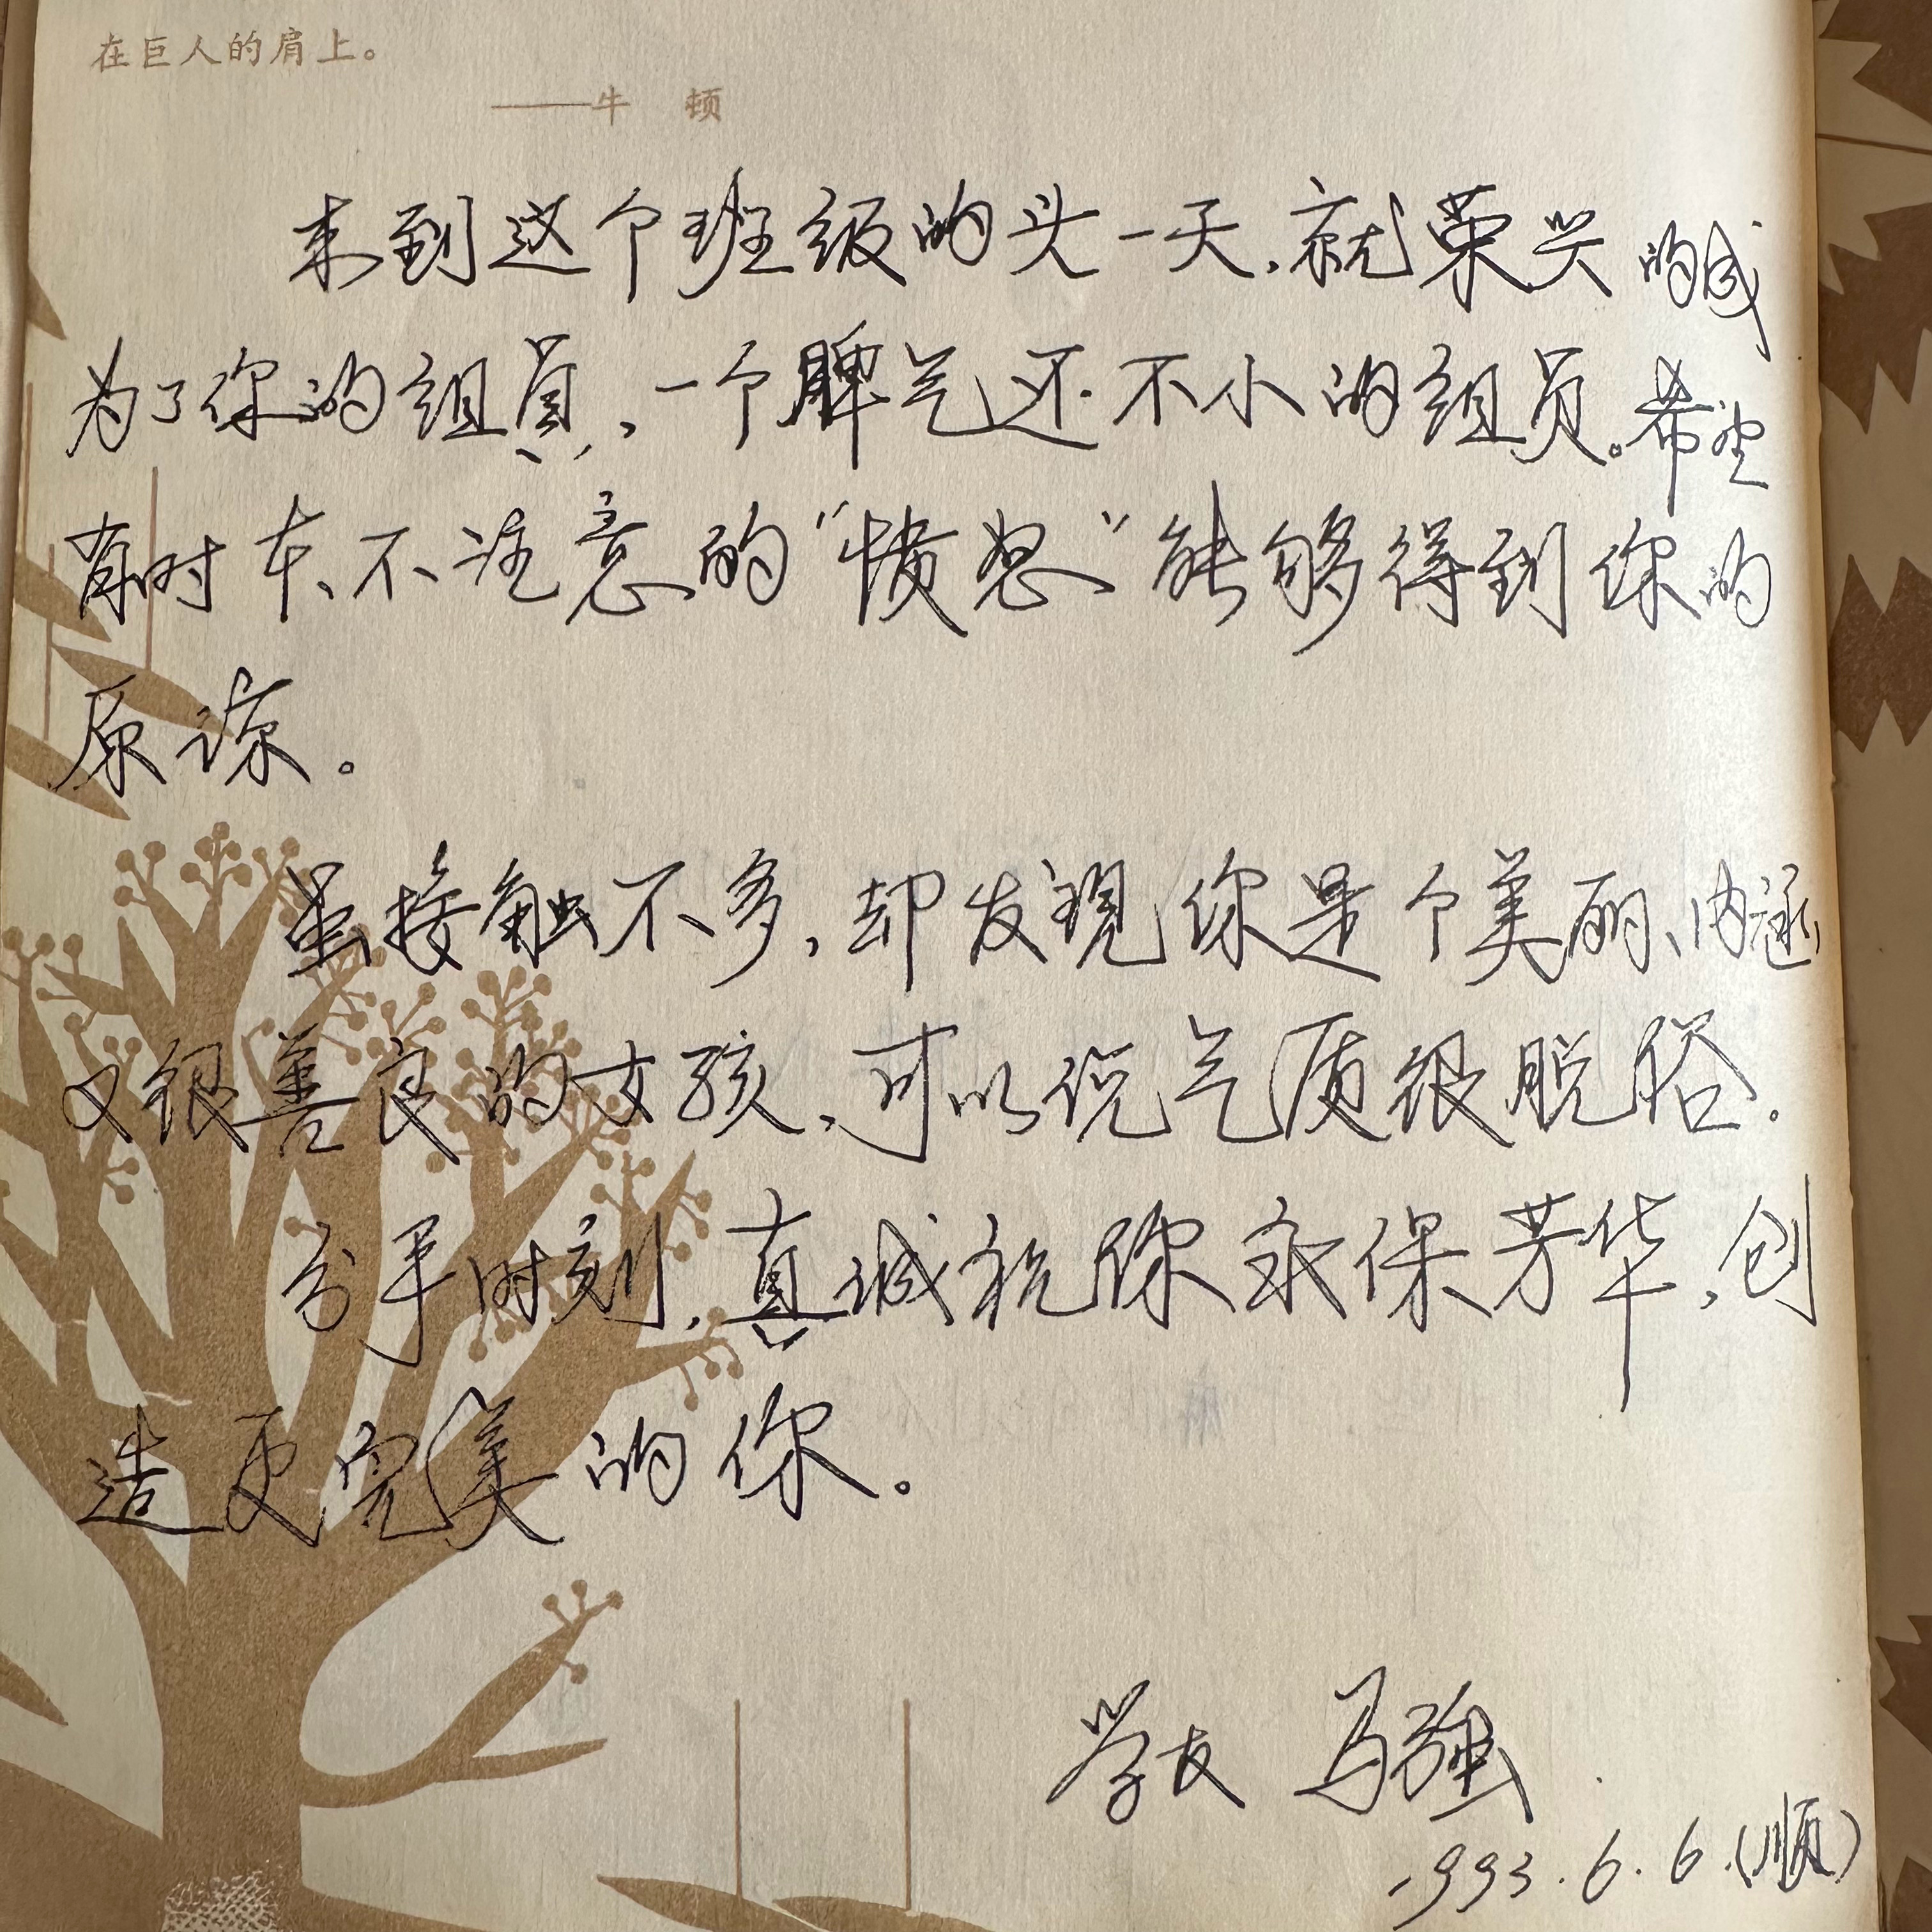 在巨人的肩上。
——牛 顿
来到这个班级的头一天,就荣兴的成
为了你的组员,一个脾气还不小的组员。希望
有时本不注意的“愤怒”能够得到你的
原谅。
虽接触不多,却发现你是个美丽、内涵
又很善良的女孩,可以说气质很脱俗.
分手时刻,真诚祝你永保芳华,创
造更完美的你。
学友 马强
1993.6.6.(顺)